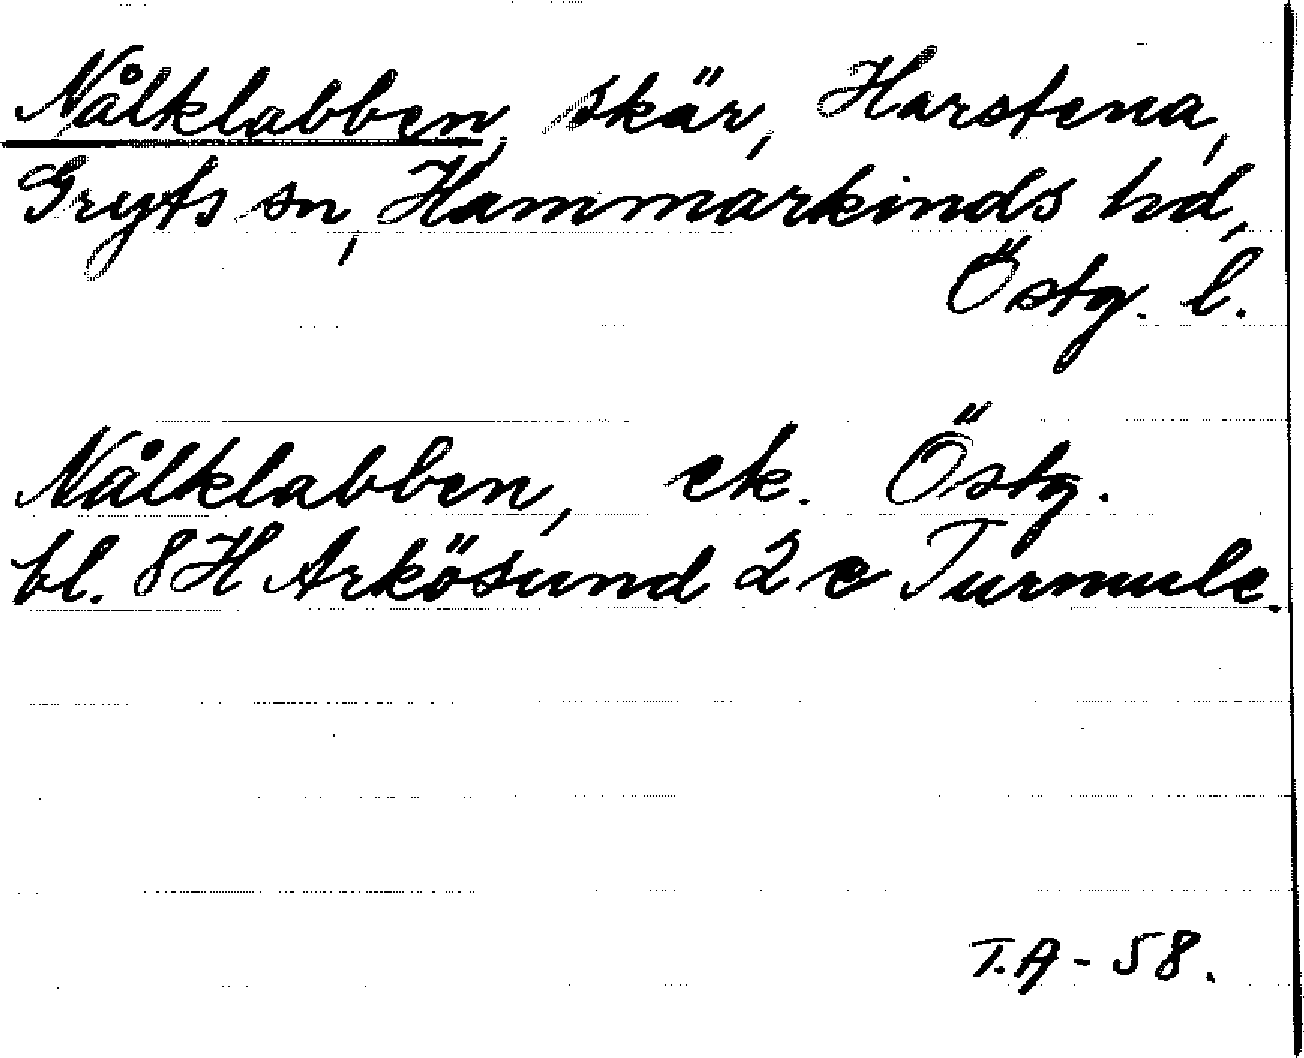 Nålklabben, skär, Harstena,
Gryts sn, Hammarkinds hd,
Östg. l.
Nålklabben, ek. Östg.
bl. 8H Arkösund 2 c Turmule.
T.A - 58.